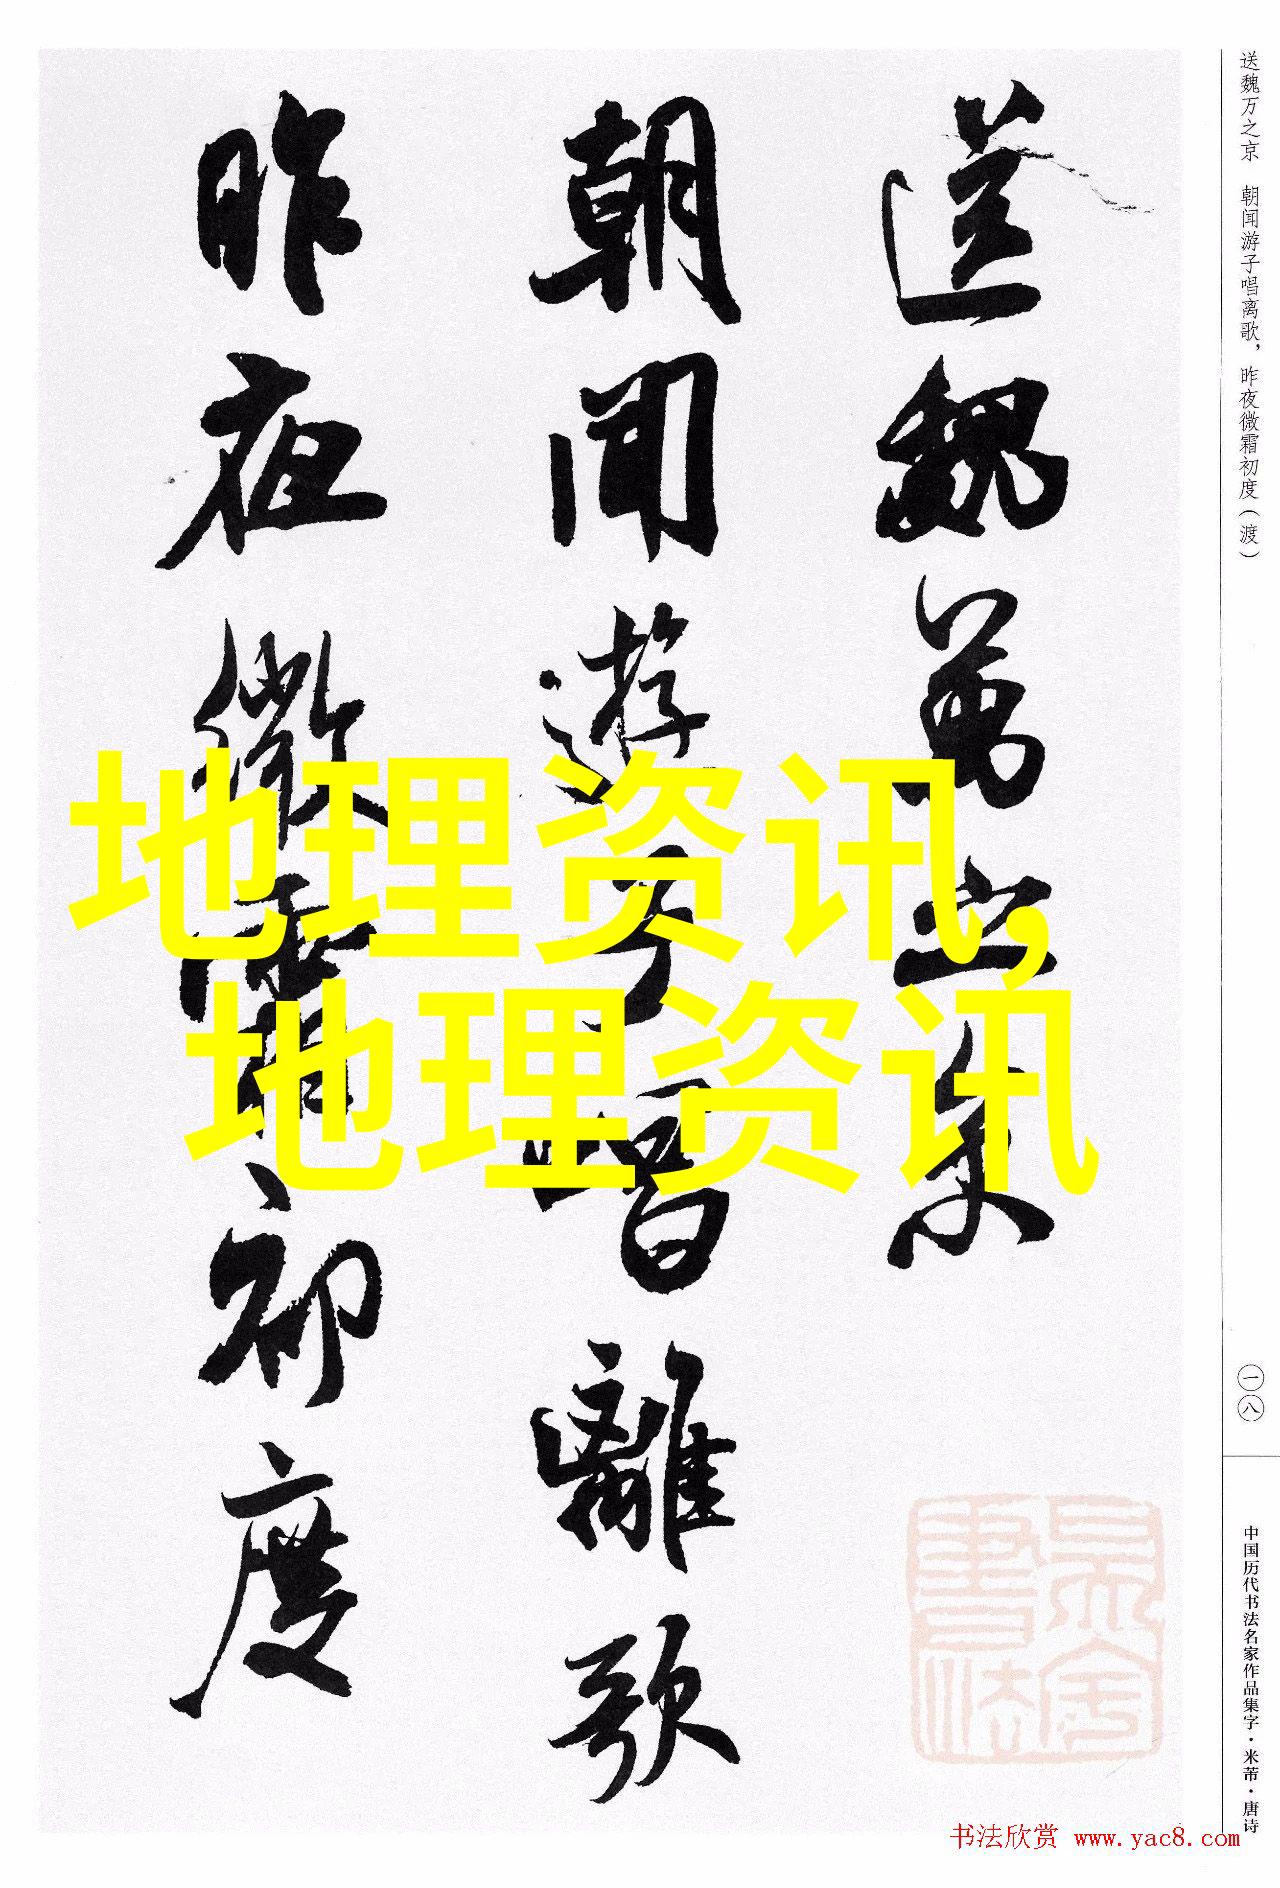 送魏万之京
朝闻游子唱离歌，昨夜微霜初度（渡）
送魏萬之京
朝聞遊子唱離歌
昨夜微霜初度
地理资讯,
地理资讯
一八
中国历代书法名家作品集字·米芾·唐诗
书法欣赏 www.yac8.com